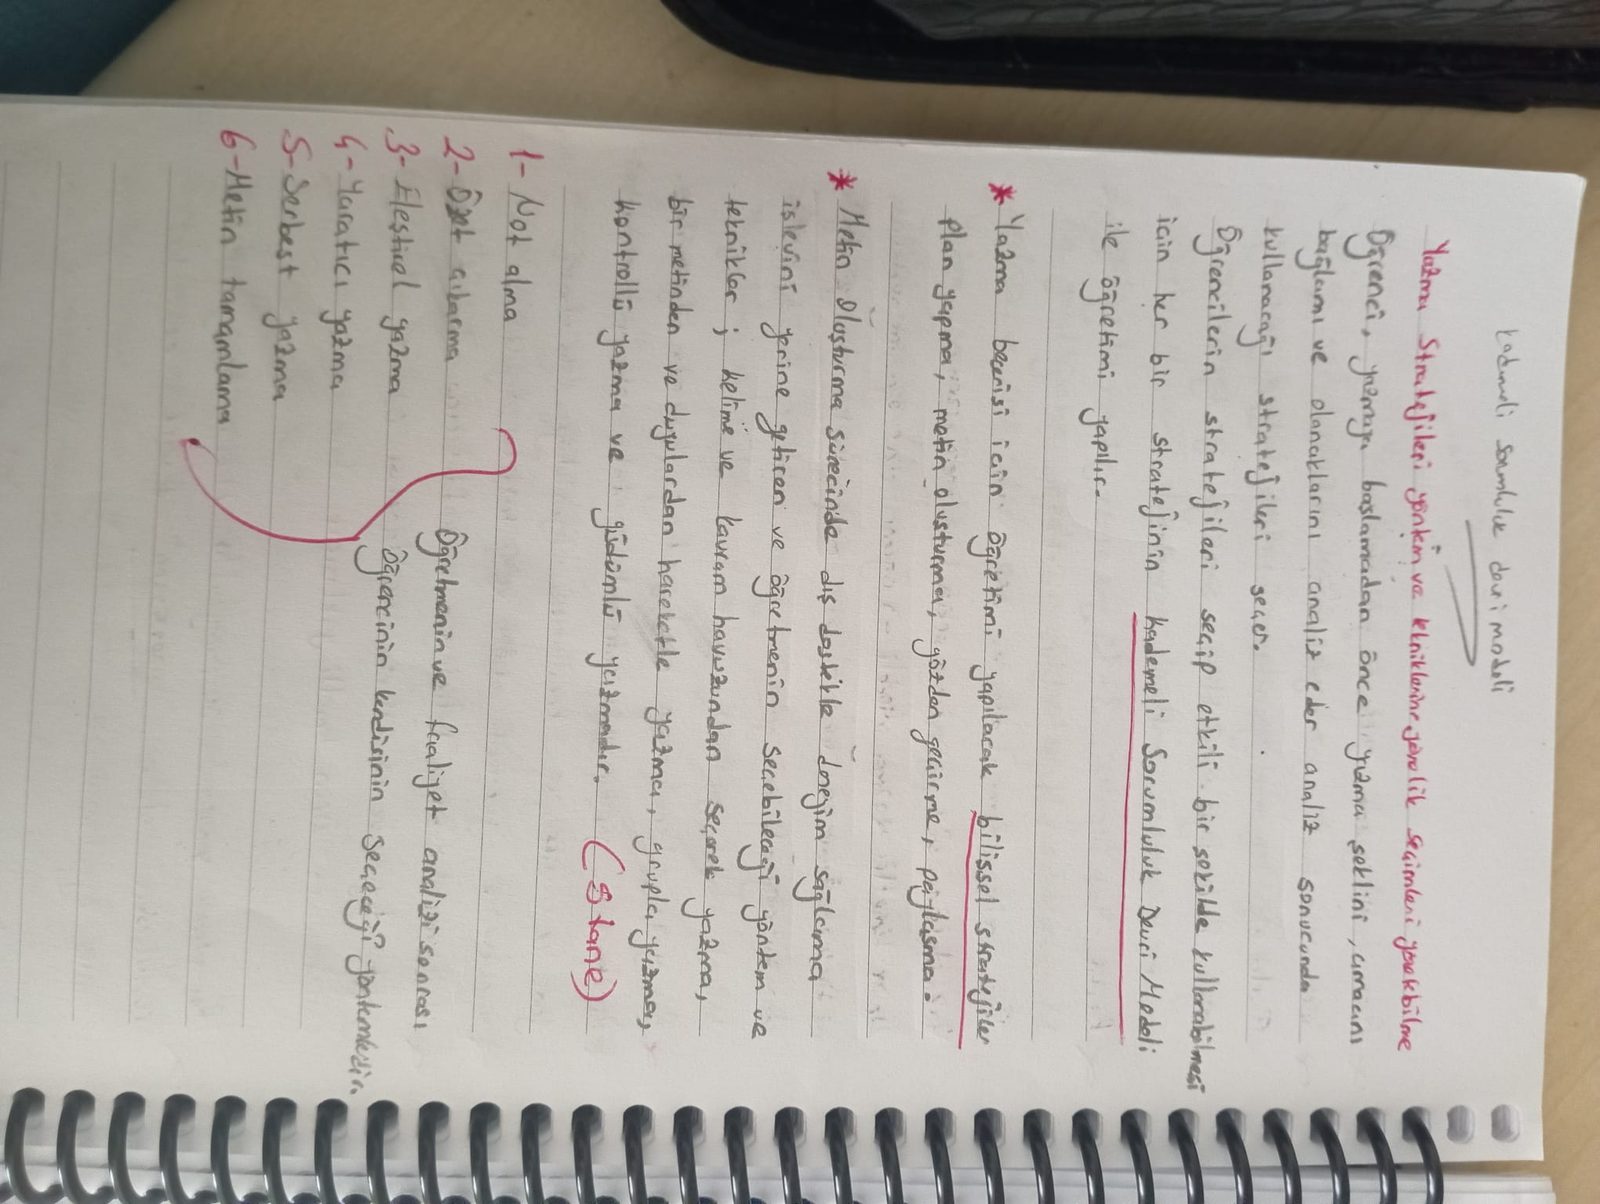 kademeli sorumluluk devri modeli
Yazma Stratejileri yöntem ve tekniklerine yönelik seçimleri yapabilme
Öğrenci, yazmaya başlamadan önce yazma şeklini, amacını
bağlamı ve olanaklarını analiz eder analiz sonucunda
kullanacağı stratejileri seçer.
Öğrencilerin stratejileri seçip etkili bir şekilde kullanabilmesi
için her bir stratejinin kademeli Sorumluluk Devri Modeli
ile öğretimi yapılır.
* Yazma becerisi için öğretimi yapılacak bilişsel stratejiler
Plan yapma, metin oluşturma, gözden geçirme, paylaşma.
* Metin Oluşturma sürecinde dış destekle deneyim sağlama
işlevini yerine getiren ve öğretmenin seçebileceği yöntem ve
teknikler; kelime ve kavram havuzundan seçerek yazma,
bir metinden ve duygulardan hareketle yazma, grupla yazma,
kontrollü yazma ve güdümlü yazmadır. (5 tane)
1- Not alma
2- Özet çıkarma
3- Eleştirel yazma
4- Yaratıcı yazma
5- Serbest yazma
6- Metin tamamlama
Öğretmenin ve faaliyet analizi sonrası
öğrencinin kendisinin seçeceği yöntemlerdir.